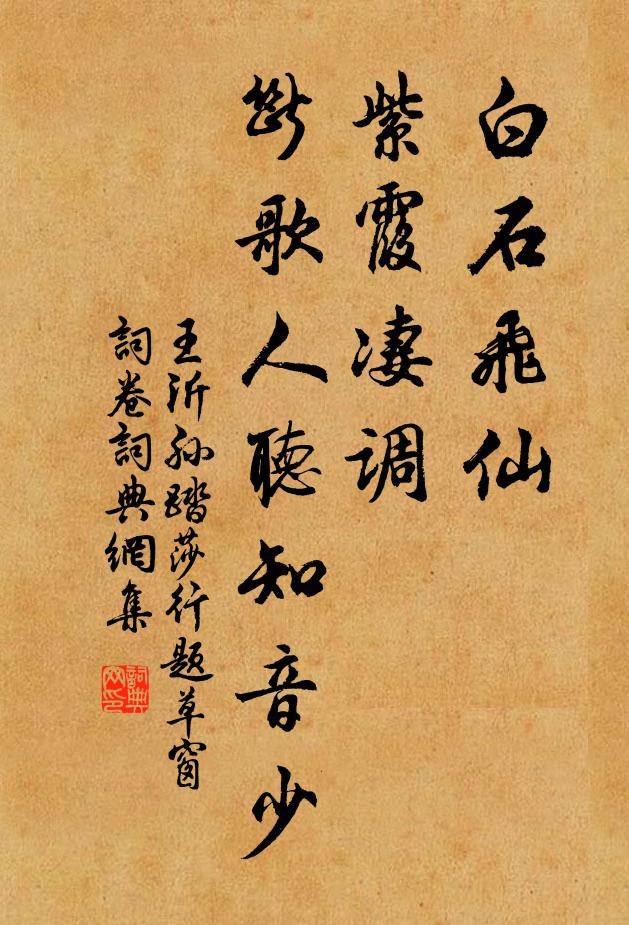 白石飛仙
紫霞凄调
斷歌人聽知音少
王沂孙踏莎行题草窗
詞卷詞典網集
詞典网印